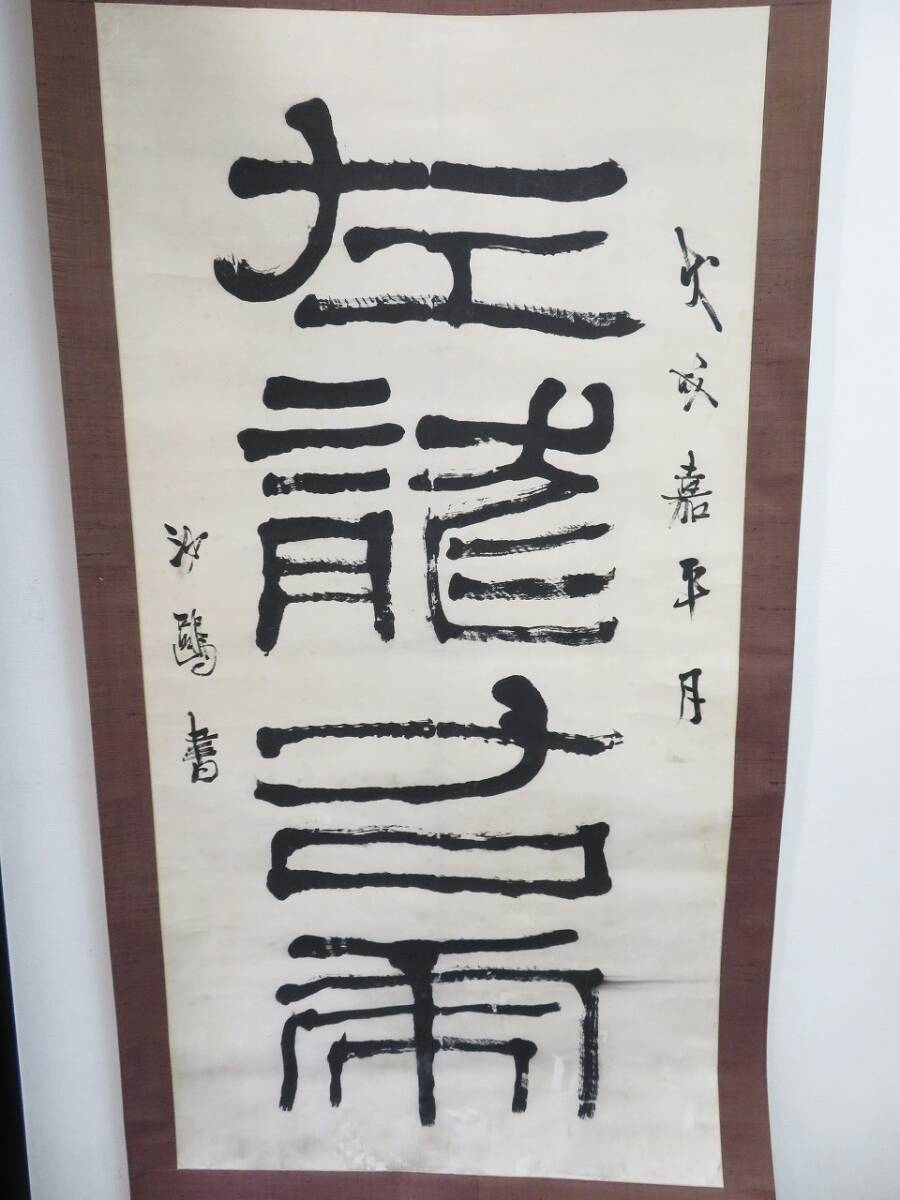 戊戌嘉平月
左龍右
沙鷗書